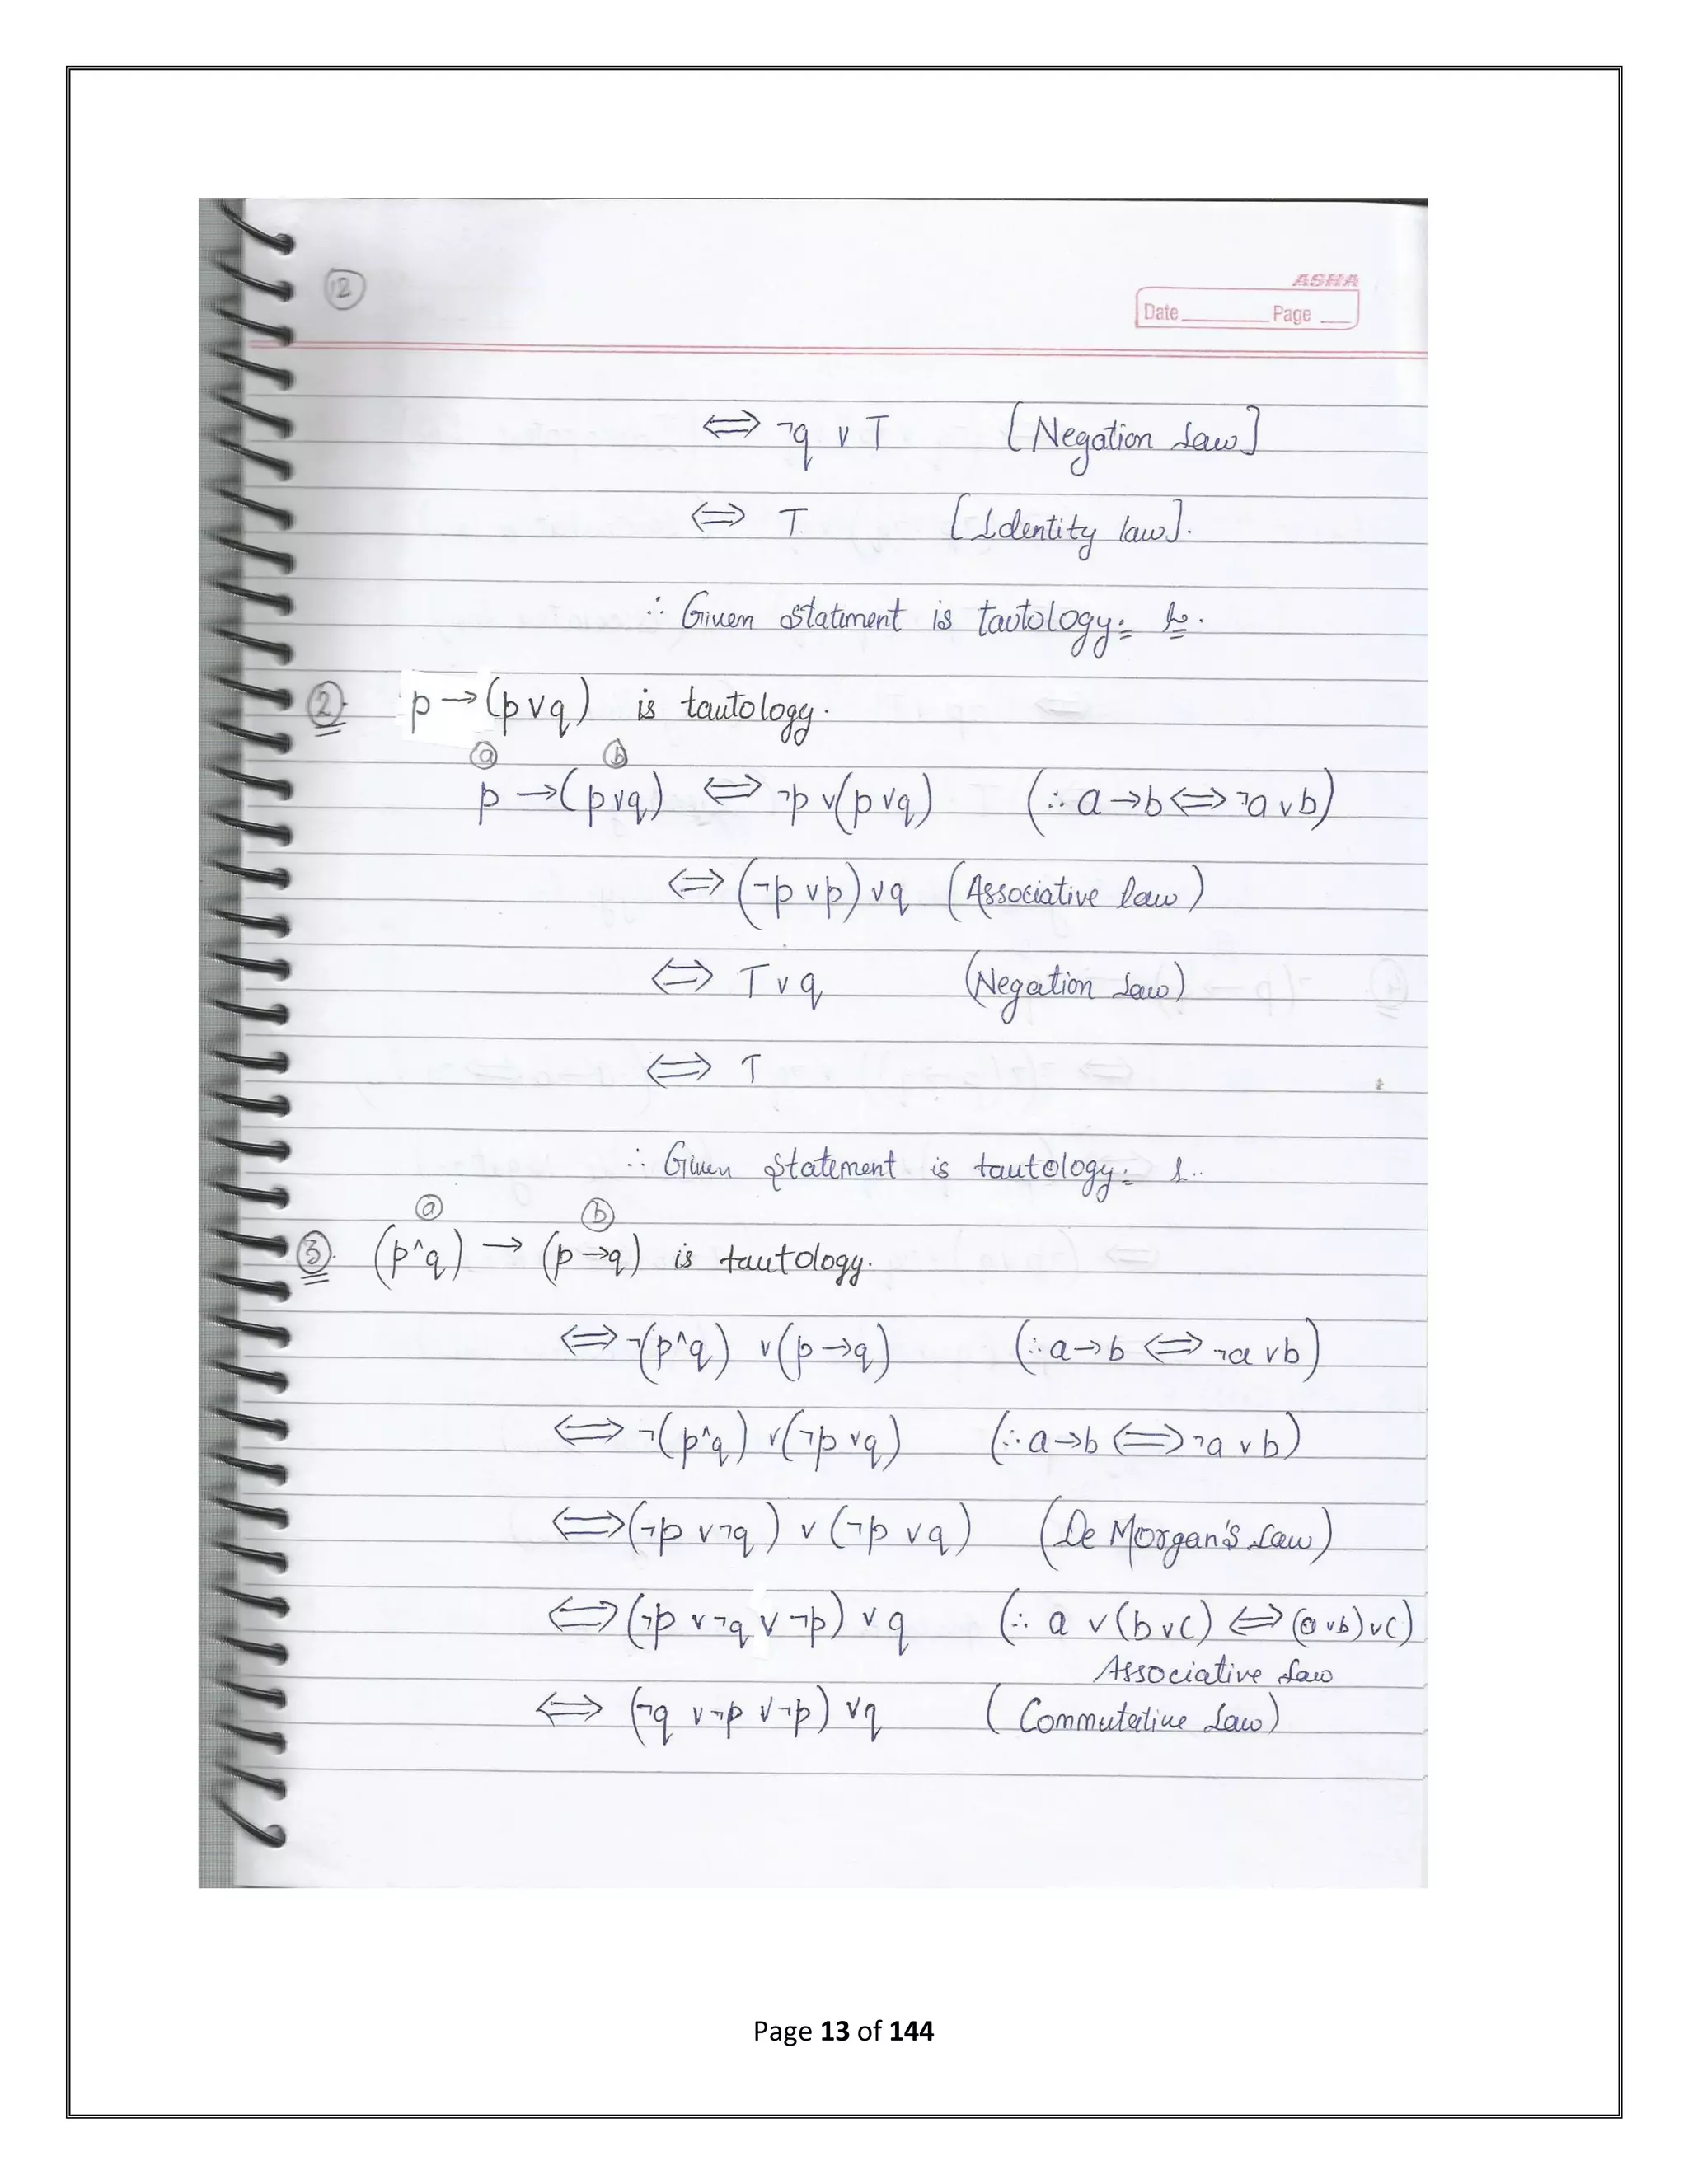 12
ASHA
Date Page
⇔ ¬q ∨ T [Negation Law]
⇔ T [Identity law].
∴ Given statement is tautology.
② p → (p ∨ q) is tautology.
ⓐ ⓑ
p → (p ∨ q) ⇔ ¬p ∨ (p ∨ q) (∵ a → b ⇔ ¬a ∨ b)
⇔ (¬p ∨ p) ∨ q (Associative law)
⇔ T ∨ q (Negation Law)
⇔ T
∴ Given statement is tautology.
ⓐ ⓑ
③. (p ^ q) → (p → q) is tautology.
⇔ ¬(p ^ q) ∨ (p → q) (∵ a → b ⇔ ¬a ∨ b)
⇔ ¬(p ^ q) ∨ (¬p ∨ q) (∵ a → b ⇔ ¬a ∨ b)
⇔ (¬p ∨ ¬q) ∨ (¬p ∨ q) (De Morgan's Law)
⇔ (¬p ∨ ¬q ∨ ¬p) ∨ q (∵ a ∨ (b ∨ c) ⇔ (a ∨ b) ∨ c)
Associative Law
⇔ (¬q ∨ ¬p ∨ ¬p) ∨ q (Commutative Law)
Page 13 of 144